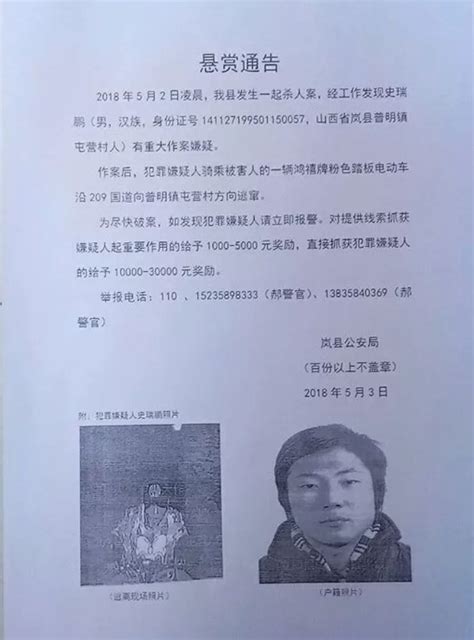 悬赏通告
2018 年 5 月 2 日凌晨，我县发生一起杀人案，经工作发现史瑞
鹏（男，汉族，身份证号 141127199501150057，山西省岚县普明镇
屯营村人）有重大作案嫌疑。
作案后，犯罪嫌疑人骑乘被害人的一辆鸿禧牌粉色踏板电动车
沿 209 国道向普明镇屯营村方向逃窜。
为尽快破案，如发现犯罪嫌疑人请立即报警。对提供线索抓获
嫌疑人起重要作用的给予 1000-5000 元奖励，直接抓获犯罪嫌疑人
的给予 10000-30000 元奖励。
举报电话：110 、15235898333（郝警官）、13835840369（郝
警官）
岚县公安局
（百份以上不盖章）
2018 年 5 月 3 日
附：犯罪嫌疑人史瑞鹏照片
（逃离现场照片）
（户籍照片）